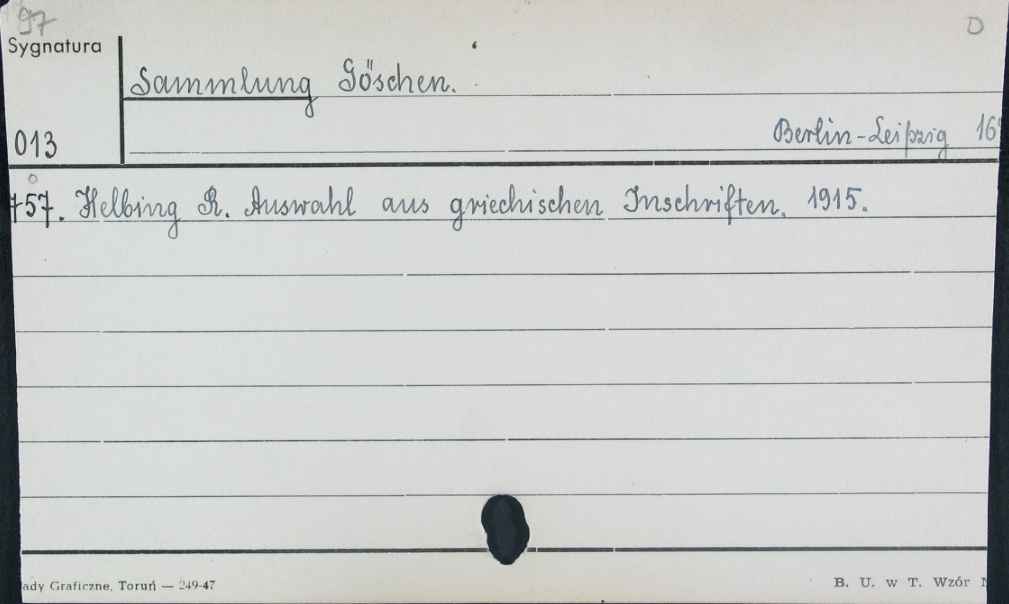 97 D
Sygnatura
Sammlung Göschen.
013 Berlin-Leipzig 16°
757. Helbing R. Auswahl aus griechischen Inschriften. 1915.
ady Graficzne, Toruń — 249-47 B. U. w T. Wzór